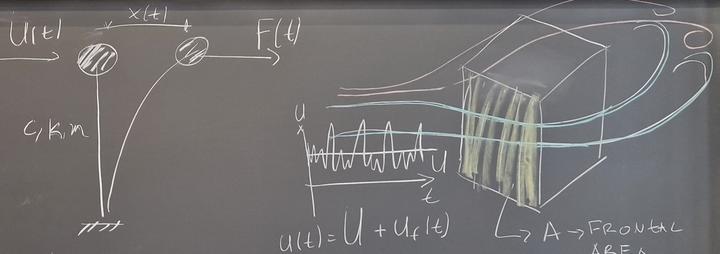 U(t)
x(t)
F(t)
c, k, m
u
U
t
u(t) = U + uf(t)
A → FRONTAL
AREA